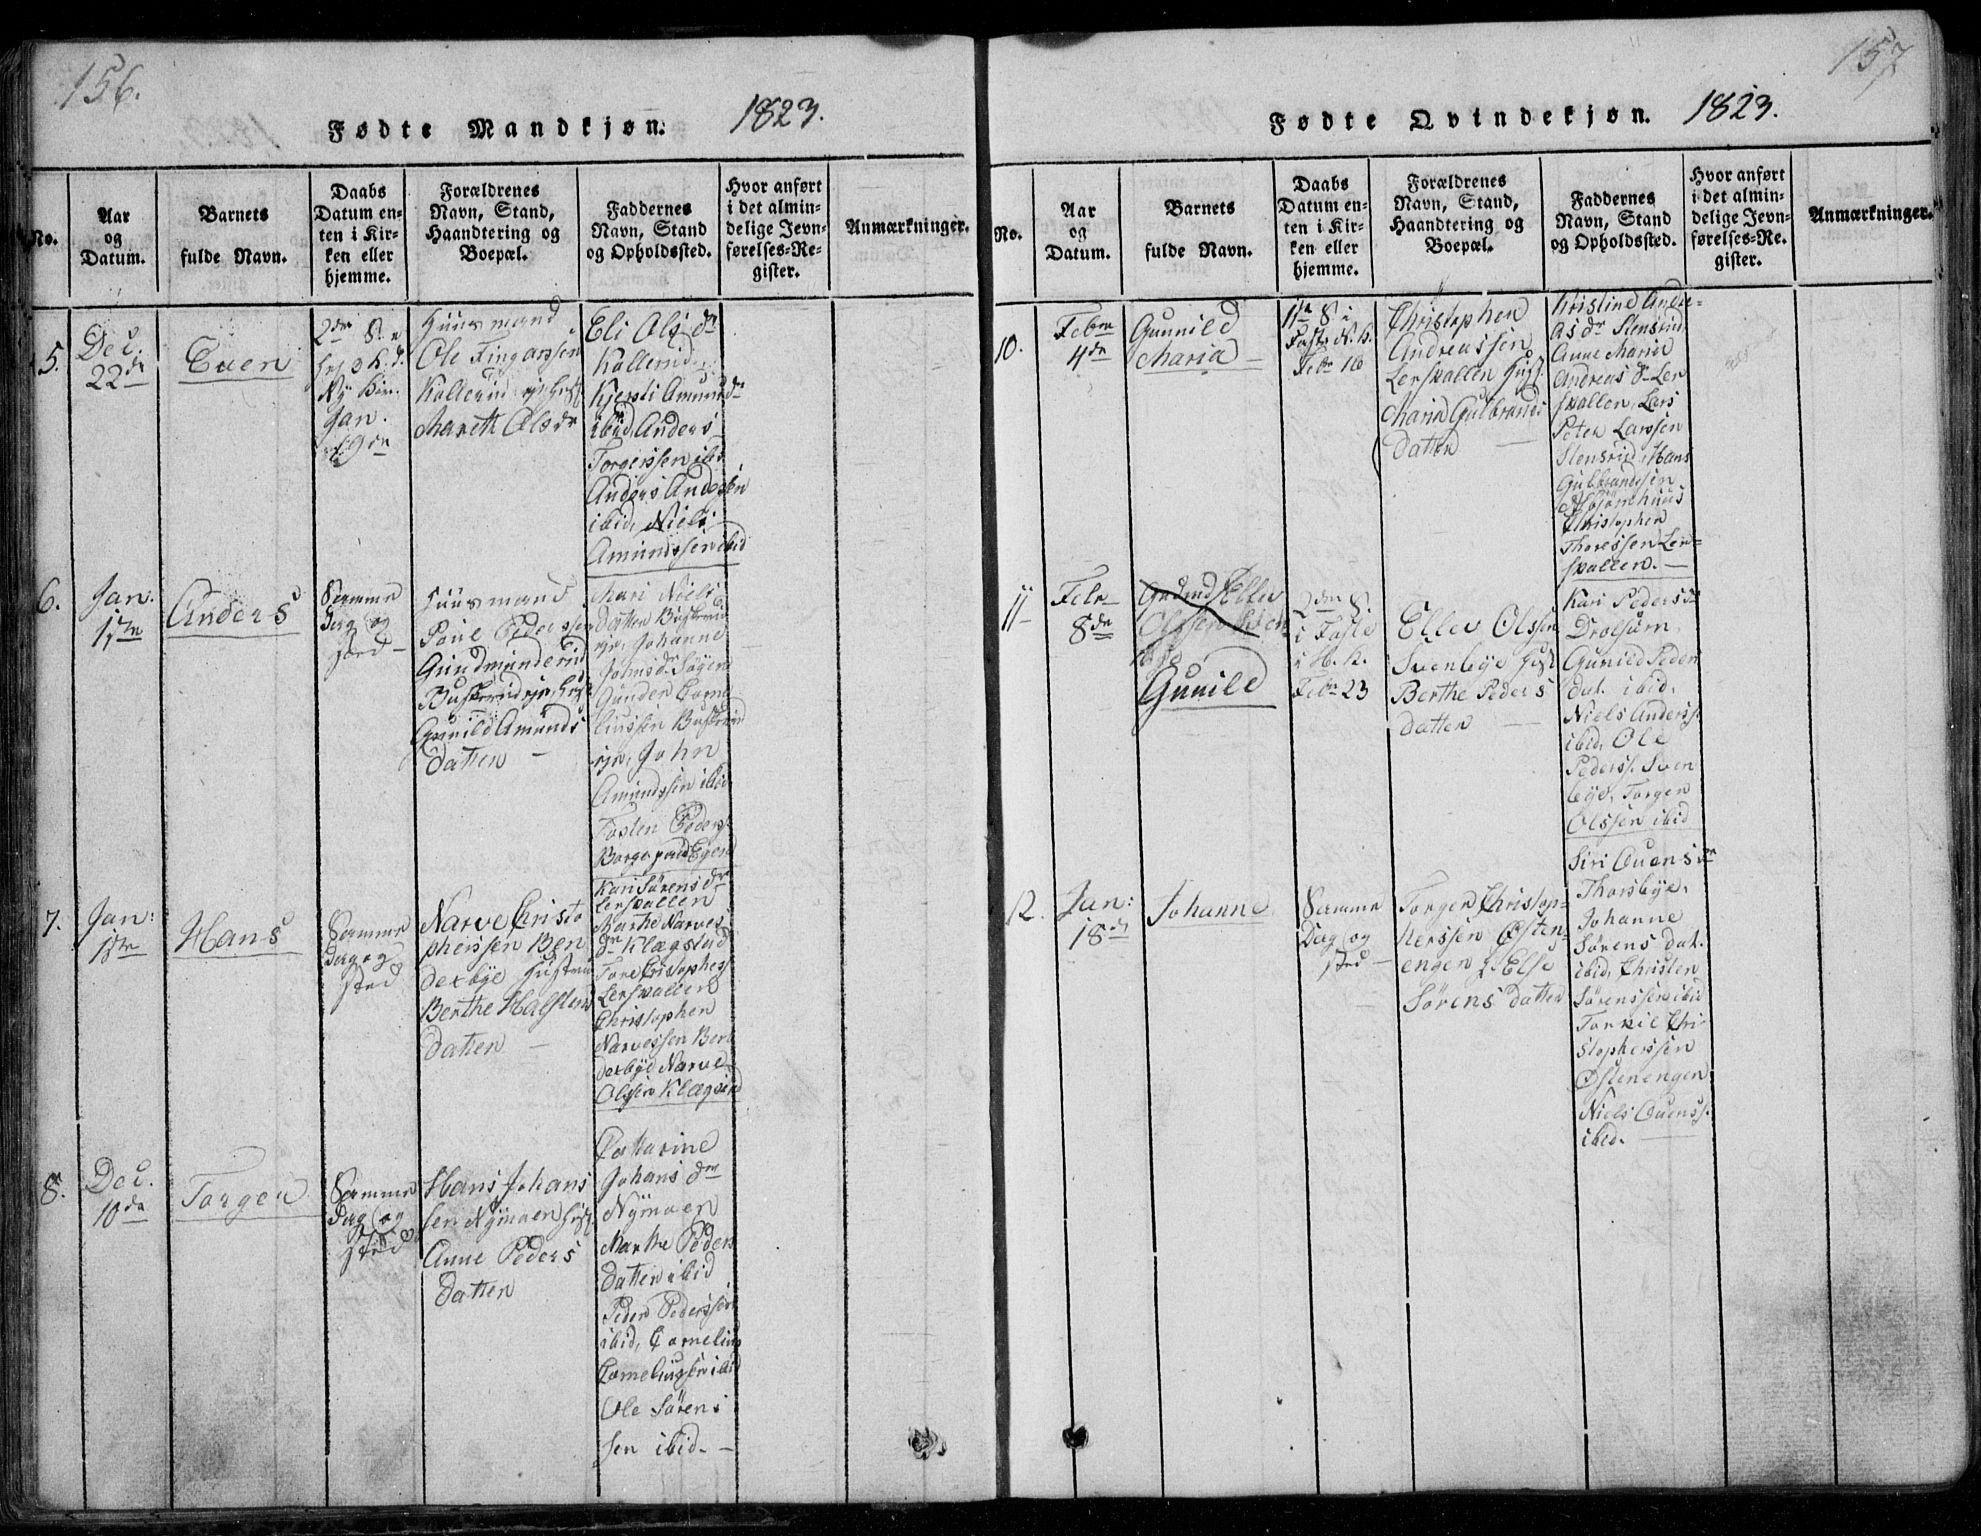 156.
Fødte Mandkjøn. 1823.
No.
Aar
og
Datum.
Barnets
fulde Navn.
Daabs
Datum en-
ten i Kir-
ken eller
hjemme.
Forældrenes
Navn, Stand,
Haandtering og
Boepæl.
Faddernes
Navn, Stand
og Opholdssted.
Hvor anført
i det almin-
delige Jevn-
førelses-Re-
gister.
Anmærkninger.
5.
Dec.
22de
Even
Jan.
19de
Huusmand
Ole Fingarssen
Kollerud
Mareth Olsdr
Eli Olsdr
Kollerud
Kjersti Amundsdr
ibid, Anders
Torgerssen ibid
Anders Anderssen
ibid, Niels
Amundssen ibid
6.
Jan.
Anders
Samme
Dag og
sted
Huusmand
Poul Pederssen
Gundmunderud
Gunild Amunds
datter
Mari Niels
datter
Johanne
Gunder Corne
liussen
John
Amundssen ibid
Tosten Peders.
7.
Jan:
Hans
Samme
Dag og
sted
Narve Christo
pherssen Ben
dexbye Hustrue
Berthe Halstens
datter
Kari Sørensdr
Lerskallen
Marthe Narves
dr Klægstad
Tore Cristophers.
Lerskallen
Christopher
Narvessen Ben
dexbye Narve
Olssen Klægstad
8.
Dec.
10de
Torger
Samme
Dag og
sted
Hans Johans
sen Nymoen Hust.
Anne Peders
datter
Catharine
Johansdr
Nymoen
Marthe Peders
datter ibid
Peder Pederssen
ibid, Cornelius
Corneliussen ibid
Ole Sørens
sen ibid.
157
Fødte Qvindekjøn. 1823.
No.
Aar
og
Datum.
Barnets
fulde Navn.
Daabs
Datum en-
ten i Kir-
ken eller
hjemme.
Forældrenes
Navn, Stand,
Haandtering og
Boepæl.
Faddernes
Navn, Stand
og Opholdssted.
Hvor anført
i det almin-
delige Jevn-
førelses-Re-
gister.
Anmærkninger.
10.
Febr
4de
Gunnild
Maria
1te S. i
Faste N. K.
Febr 16
Christopher
Andreassen
Lerskallen Hust.
Maria Gulbrands
datter
Kristine Andre-
asdr Stensrud
Anne Maria
Andreasdr Ler
skallen, Lars
Peter Larssen
Stensrud, Hans
Gulbrandssen
Christopher
Thoressen Ler-
skallen.
11
Febr
8de
Gunild
2den S.
i Faste
i H. K.
Febr 23
Ellev Olssen
Svenbye Hust
Berthe Peders
datter
Kari Pedersdr
Drolsum,
Gunild Peders
dat. ibid,
Niels Anderss.
ibid, Ole
Pederss. Sven
bye, Torger
Olssen ibid
12.
Jan:
18de
Johanne
Samme
Dag og
sted
Torger Christop-
herssen Østen-
engen & Else
Sørensdatter
Siri Ouensdr
Thorsbye,
Johanne
Sørens dat.
ibid, Christen
Sørenssen ibid
Torkil Chri-
stopherssen
Østenengen
Niels Ouenss.
ibid.